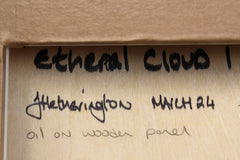 Etheral Cloud 1
JHetherington March 24
oil on wooden panel